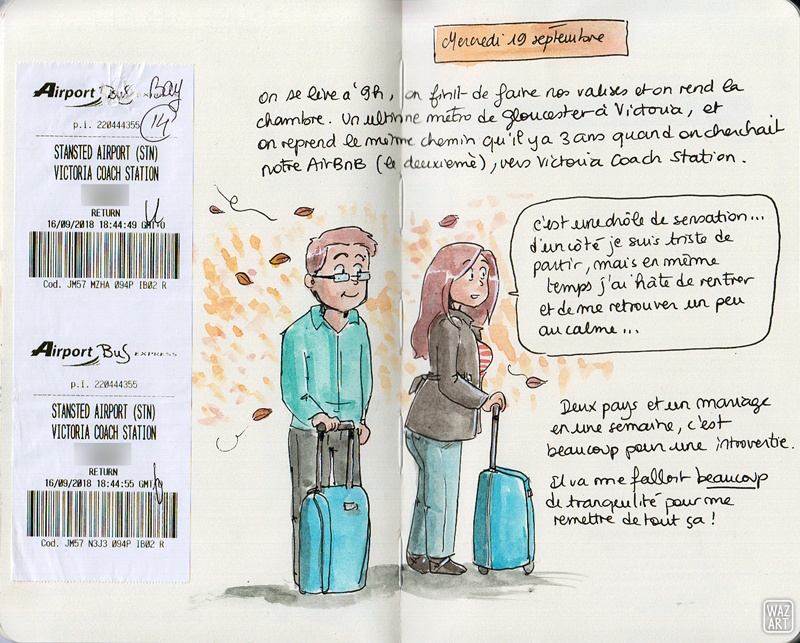 Airport Bus EXPRESS
Bay
14
p.i. 220444355
STANSTED AIRPORT (STN)
VICTORIA COACH STATION
RETURN
16/09/2018 18:44:49 GMT+0
Cod. JM57 MZHA 094P IB02 R
Airport Bus EXPRESS
p.i. 220444355
STANSTED AIRPORT (STN)
VICTORIA COACH STATION
RETURN
16/09/2018 18:44:55 GMT
Cod. JM57 N3J3 094P IB02 R
Mercredi 19 septembre
on se lève à 9h, on finit de faire nos valises et on rend la
chambre. Un ultime métro de Gloucester à Victoria, et
on reprend le même chemin qu'il y a 3 ans quand on cherchait
notre AirBNB (le deuxième), vers Victoria Coach Station.
c'est une drôle de sensation...
d'un côté je suis triste de
partir, mais en même
temps j'ai hâte de rentrer
et de me retrouver un peu
au calme...
Deux pays et un mariage
en une semaine, c'est
beaucoup pour une introvertie.
Il va me falloir beaucoup
de tranquilité pour me
remettre de tout ça !
WAZ
ART